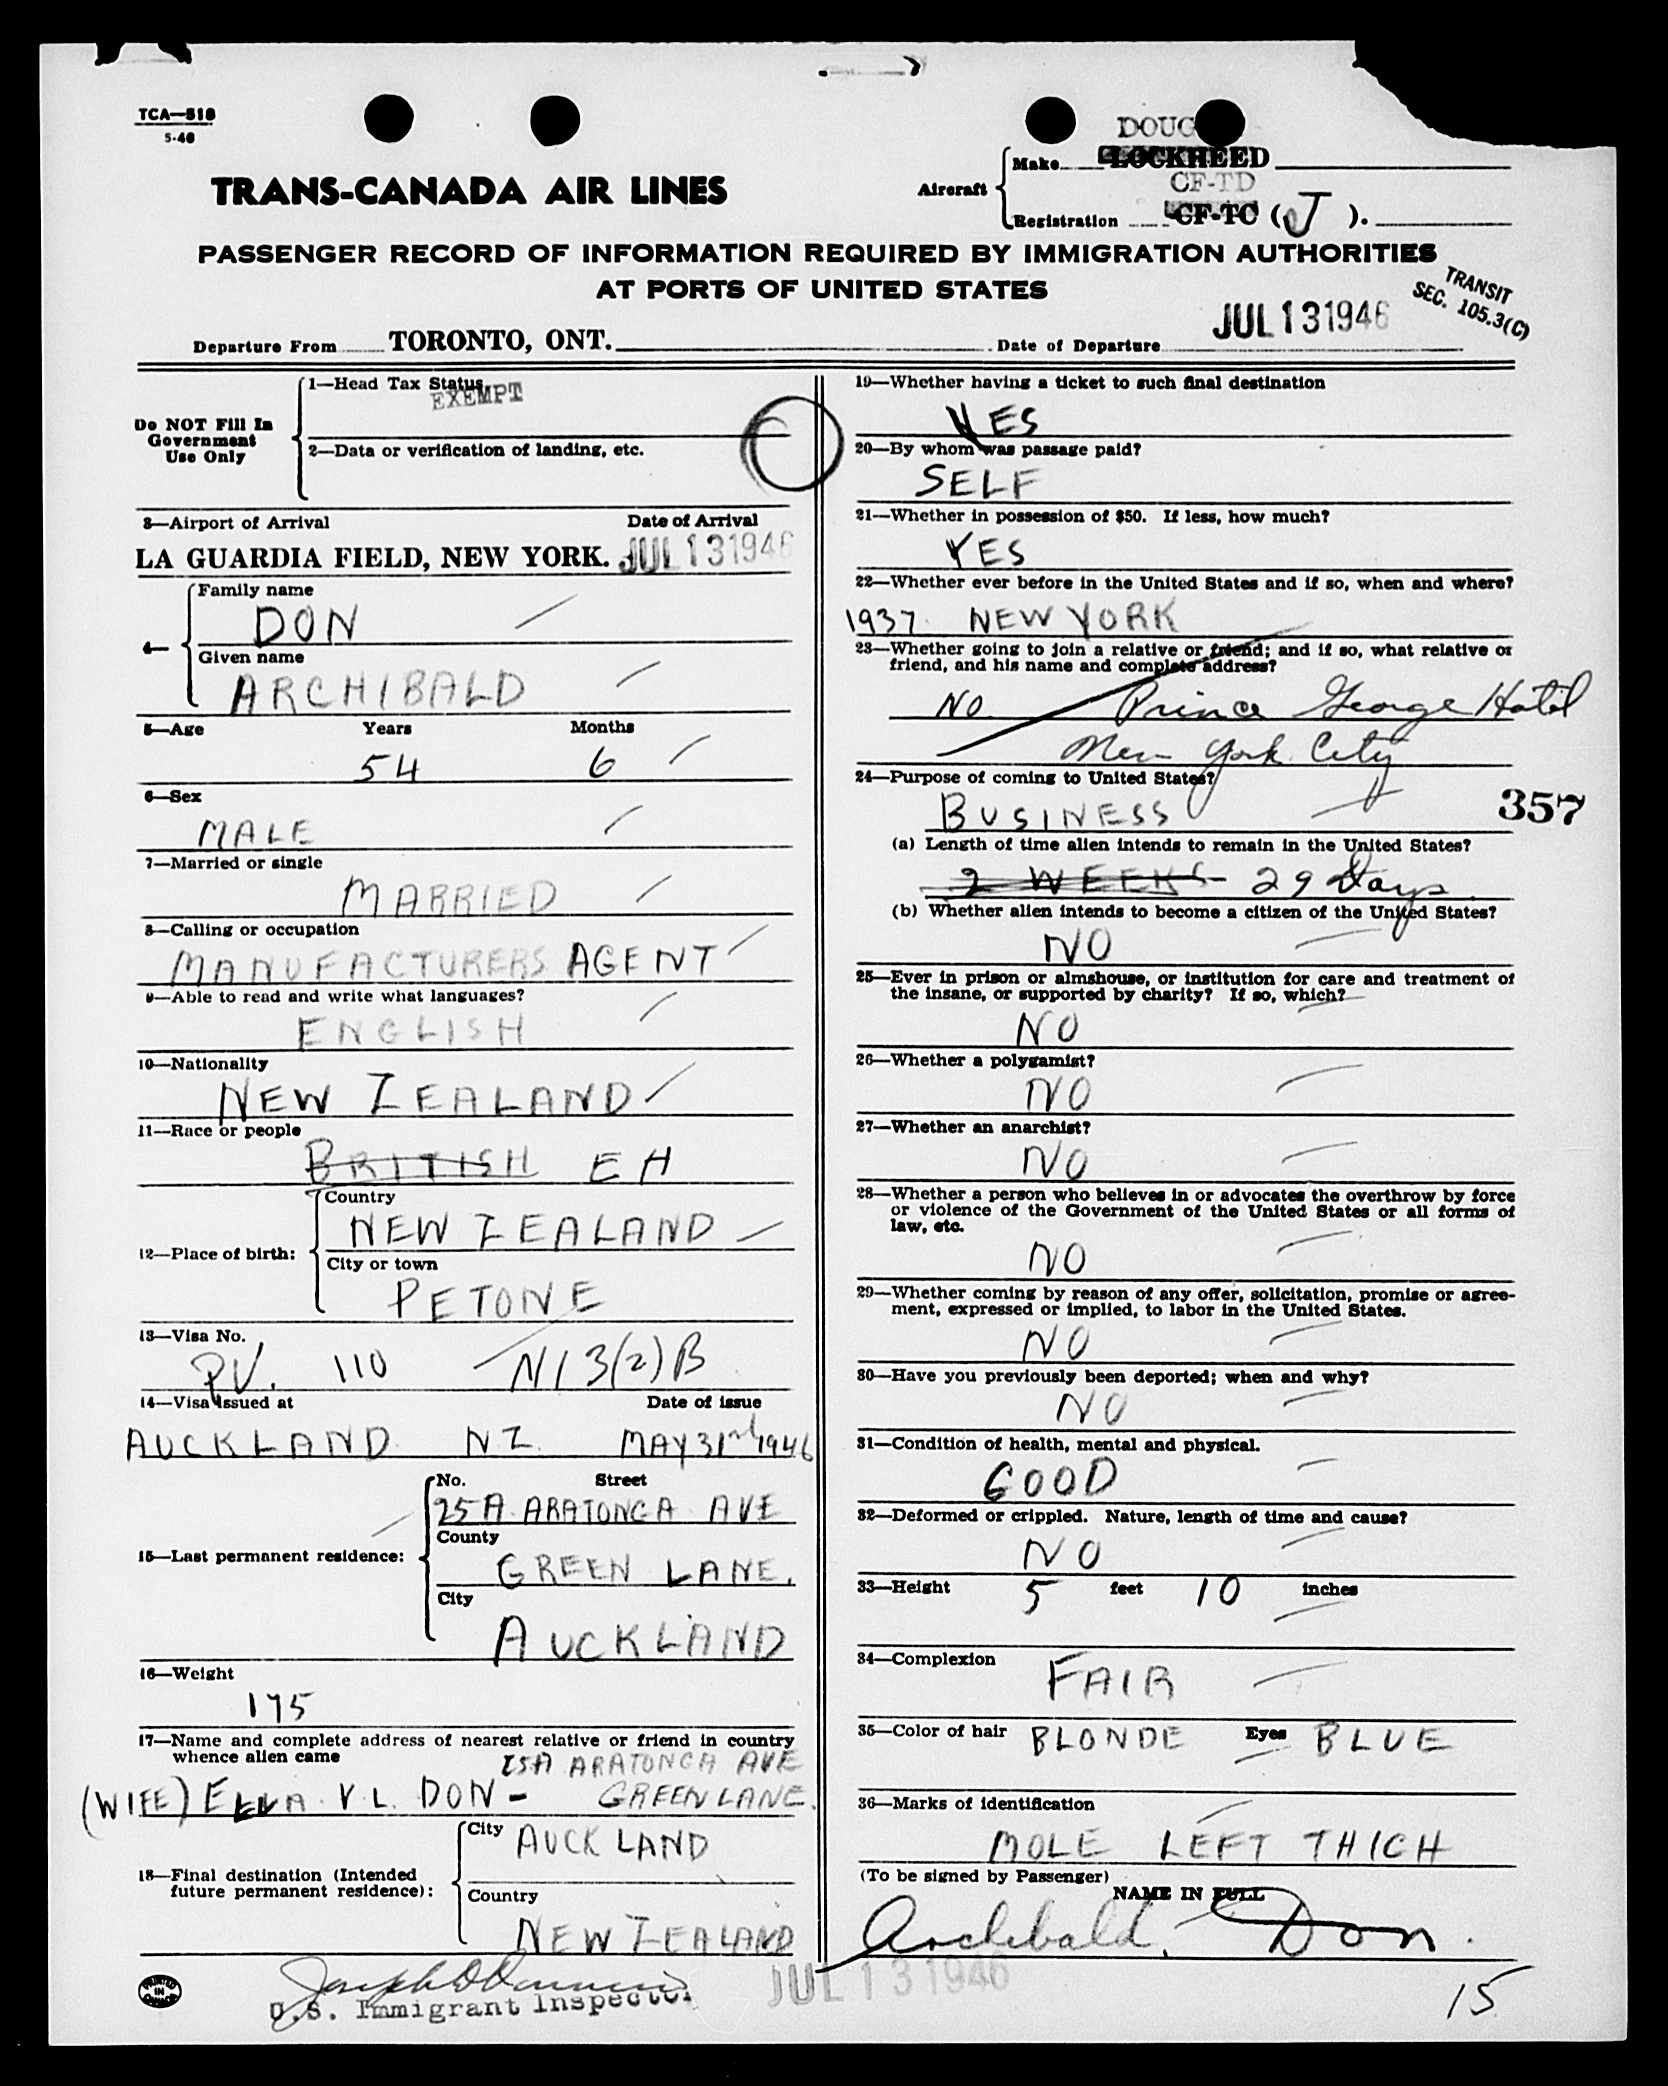 TCA—518
5-46
TRANS-CANADA AIR LINES
Aircraft
DOUG
Make LOCKHEED
CF-TD
Registration CF-TC ( J ).
PASSENGER RECORD OF INFORMATION REQUIRED BY IMMIGRATION AUTHORITIES
AT PORTS OF UNITED STATES
TRANSIT
SEC. 105.3(C)
Departure From TORONTO, ONT. Date of Departure JUL 13 1946
Do NOT Fill In
Government
Use Only
1—Head Tax Status
EXEMPT
2—Data or verification of landing, etc.
3—Airport of Arrival Date of Arrival
LA GUARDIA FIELD, NEW YORK. JUL 13 1946
4—
Family name
DON
Given name
ARCHIBALD
5—Age Years Months
54 6
6—Sex
MALE
7—Married or single
MARRIED
8—Calling or occupation
MANUFACTURERS AGENT
9—Able to read and write what languages?
ENGLISH
10—Nationality
NEW ZEALAND
11—Race or people
BRITISH EH
12—Place of birth:
Country
NEW ZEALAND
City or town
PETONE
13—Visa No.
PV. 110 N13(2)B
14—Visa issued at Date of issue
AUCKLAND NZ MAY 31nd 1946
15—Last permanent residence:
No. Street
25A ARATONGA AVE
County
GREEN LANE.
City
AUCKLAND
16—Weight
175
17—Name and complete address of nearest relative or friend in country
whence alien came
25A ARATONGA AVE
(WIFE) ELLA V. L. DON - GREEN LANE.
18—Final destination (Intended
future permanent residence):
City AUCKLAND
Country
NEW ZEALAND
U.S. Immigrant Inspector
19—Whether having a ticket to such final destination
YES
20—By whom was passage paid?
SELF
21—Whether in possession of $50. If less, how much?
YES
22—Whether ever before in the United States and if so, when and where?
1937. NEW YORK
23—Whether going to join a relative or friend; and if so, what relative or
friend, and his name and complete address?
NO. Prince George Hotel
New York City
24—Purpose of coming to United States?
BUSINESS
357
(a) Length of time alien intends to remain in the United States?
2 WEEKS 29 Days
(b) Whether alien intends to become a citizen of the United States?
NO
25—Ever in prison or almshouse, or institution for care and treatment of
the insane, or supported by charity? If so, which?
NO
26—Whether a polygamist?
NO
27—Whether an anarchist?
NO
28—Whether a person who believes in or advocates the overthrow by force
or violence of the Government of the United States or all forms of
law, etc.
NO
29—Whether coming by reason of any offer, solicitation, promise or agree-
ment, expressed or implied, to labor in the United States.
NO
30—Have you previously been deported; when and why?
NO
31—Condition of health, mental and physical.
GOOD
32—Deformed or crippled. Nature, length of time and cause?
NO
33—Height 5 feet 10 inches
34—Complexion
FAIR
35—Color of hair BLONDE Eyes BLUE
36—Marks of identification
MOLE LEFT THIGH
(To be signed by Passenger)
NAME IN FULL
Archibald. Don.
JUL 13 1946
15
PRINTED
IN
CANADA